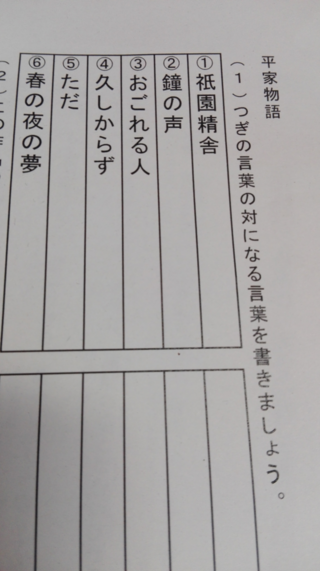 平家物語
(1)つぎの言葉の対になる言葉を書きましょう。
①祇園精舎
②鐘の声
③おごれる人
④久しからず
⑤ただ
⑥春の夜の夢